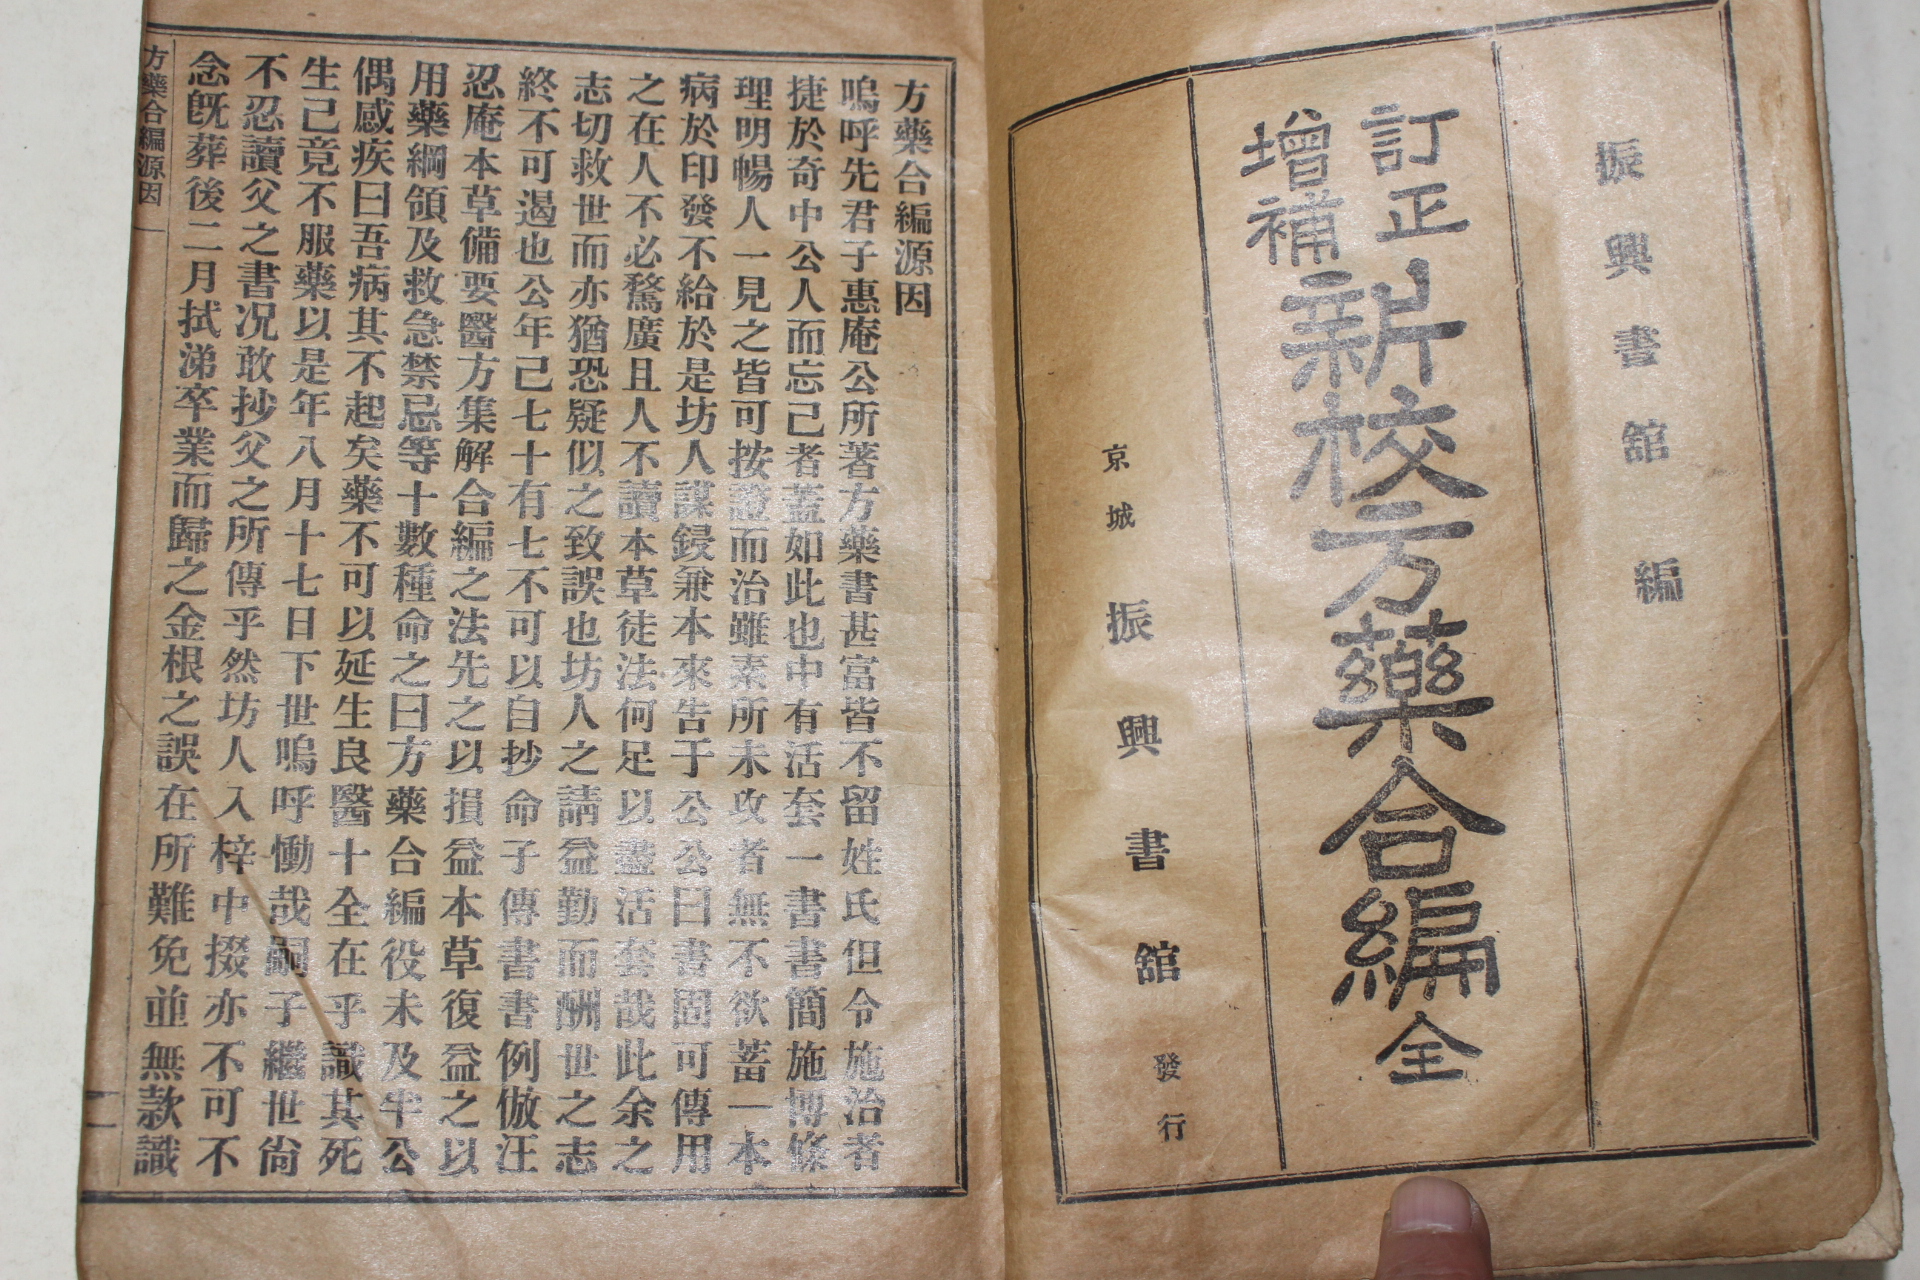 振興書舘編
訂正
增補
新校方藥合編全
京城振興書舘發行
方藥合編源因
嗚呼先君子惠庵公所著方藥書甚富皆不留姓氏但令施治者
捷於奇中公人而忘己者蓋如此也中有活套一書書簡施博條
理明暢人一見之皆可按證而治雖素所未攻者無不欲蓄一本
病於印發不給於是坊人謀鋟兼本來告于公公曰書固可傳用
之在人不必騖廣且人不讀本草徒法何足以盡活套哉此余之
志切救世而亦猶恐疑似之致誤也坊人之請益勤而酬世之志
終不可遏也公年己七十有七不可以自抄命子傳書書例倣汪
忍庵本草備要醫方集解合編之法先之以損益本草復益之以
用藥綱領及救急禁忌等十數種命之曰方藥合編役未及半公
偶感疾曰吾病其不起矣藥不可以延生良醫十全在乎識其死
生己竟不服藥以是年八月十七日下世嗚呼慟哉嗣子繼世尙
不忍讀父之書况敢抄父之所傳乎然坊人入梓中掇亦不可不
念旣葬後二月拭涕卒業而歸之金根之誤在所難免並無款識
方藥合編源因
一